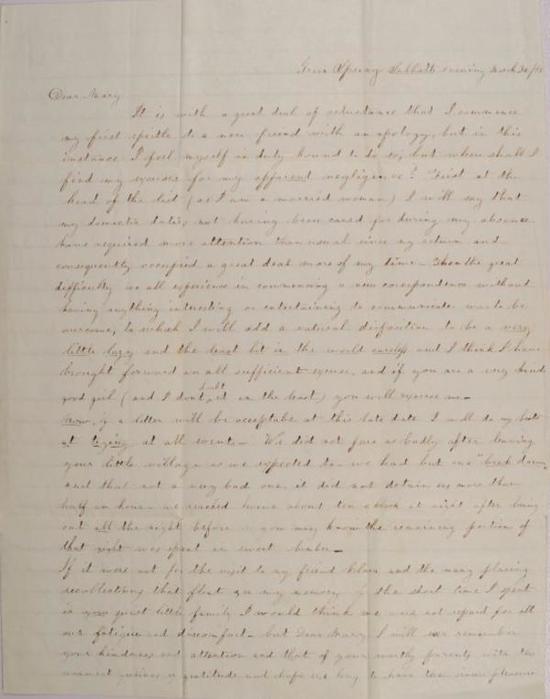 Green Spring Sabbath evening March
Dear Mary
It is with a great deal of reluctance that I commence
my first epistle to a new friend with an apology, but in this
instance I feel myself in duty bound to do so, but where shall I
find my excuse for my apparent negligence? First at the
head of the list (as I am a married woman) I will say that
my domestic duties not having been cared for during my absence
have required more attention than usual since my return and
consequently occupied a great deal more of my time — Then the great
difficulty we all experience in commencing a new corespondence without
having anything interesting or entertaining to communicate was to be
overcome, to which I will add a natural disposition to be a very
little lazy and the least bit in the world careless and I think I have
brought forward an all sufficient excuse, and if you are a very kind
good girl (and I dont doubt it in the least) you will excuse me —
Now, if a letter will be acceptable at this late date I will do my best
at trying at all events — We did not fare as badly after leaving
your little village as we expected to — we had but one "break down"
and that not a very bad one, it did not detain us more than
half an hour — we reached home about ten oclock at night after being
out all the night before you may know the remaining portion of
that night was spent in sweet slumber —
If it were not for the visit to my friend and the many pleasing
recollections that float in my memory of the short time I spent
in your quiet little family I would think we were not repaid for all
our fatigue and discomfort — but Dear Mary I will ever remember
your kindness and attention and that of your worthy parents with the
gratitude and hope we may to have the pleasure